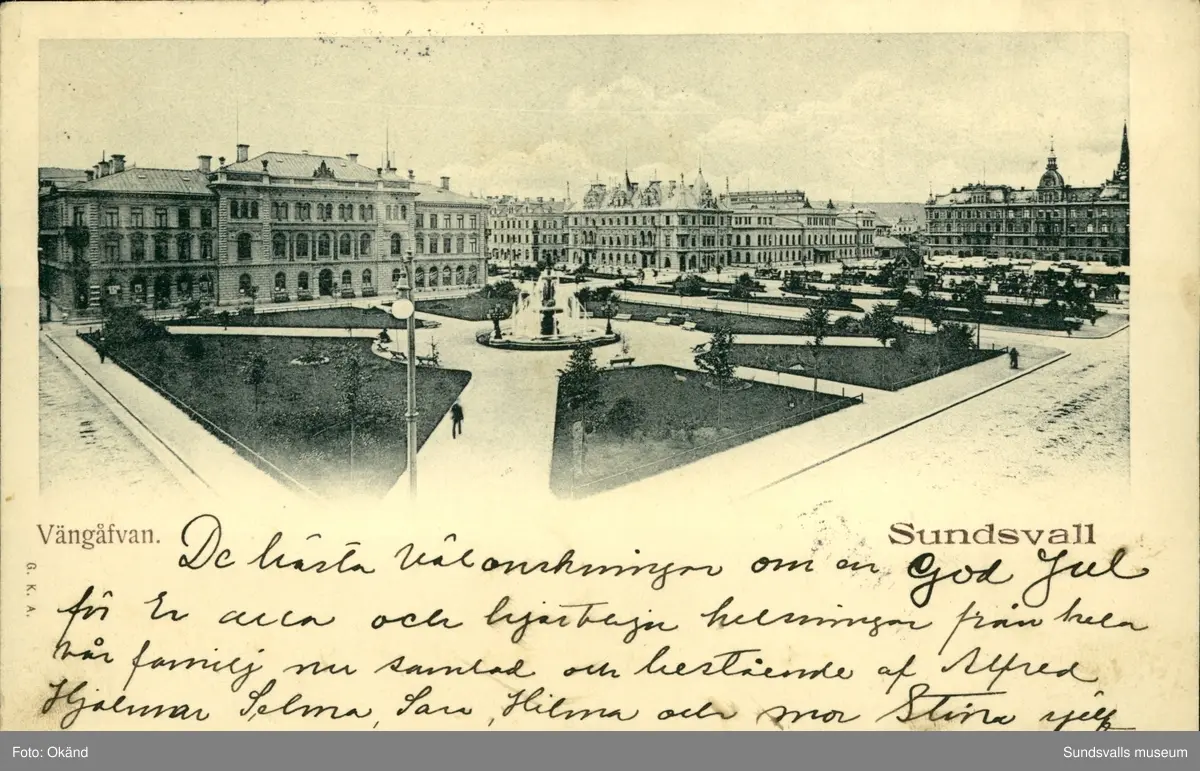 Vängåfvan.
Sundsvall
G. K. A.
De bästa välönskningar om en God Jul
för Er alla och hjärtliga helsningar från hela
vår familj nu samlad och bestående af Alfred
Hjalmar Selma, Sara, Hilma och mor Stina själf
Foto: Okänd
Sundsvalls museum